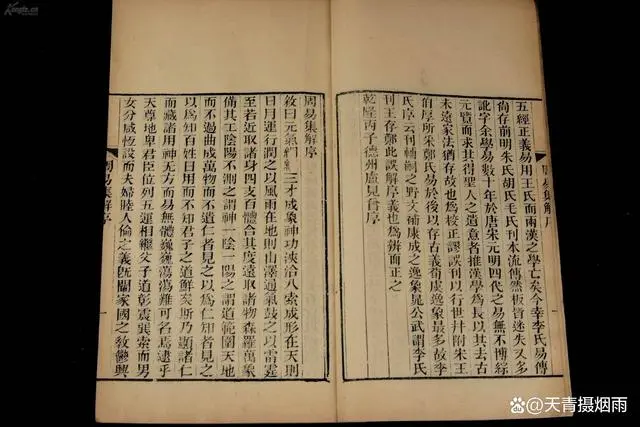 Kongfz.cn
周易集解序
五經正義易用王氏而兩漢之學亡矣今幸李氏易傳
尚存前明朱氏胡氏毛氏刊本流傳然板皆迷失又多
訛字余學易數十年於唐宋元明四代之易無不博綜
元覽而求其得聖人之遺意者推漢學爲長以其去古
未遠家法猶存故也爲校正謬誤刊以行世幷附宋王
伯厚所采鄭氏易於後以存古義荀虞逸象最多故李
氏序云刊輔嗣之野文補康成之逸象晁公武謂李氏
刊王存鄭此誤解序義也爲辨而正之
乾隆丙子德州盧見曾序
周易集解序
敘曰元氣絪縕三才成象神功浹洽八索成形在天則
日月運行潤之以風雨在地則山澤通氣鼓之以雷霆
至若近取諸身四支百體合其度遠取諸物森羅萬象
備其工陰陽不測之謂神一陰一陽之謂道範圍天地
而不過曲成萬物而不遺仁者見之以爲仁知者見之
以爲知百姓日用而不知君子之道鮮矣斯乃顯諸仁
而藏諸用神无方而易無體巍巍蕩蕩難可名焉逮乎
天尊地卑君臣位列五運相繼父子道彰震巽索而男
女分咸恆設而夫婦睦人倫之義旣闡家國之敎鬱興
周易集解序
@天青摄烟雨